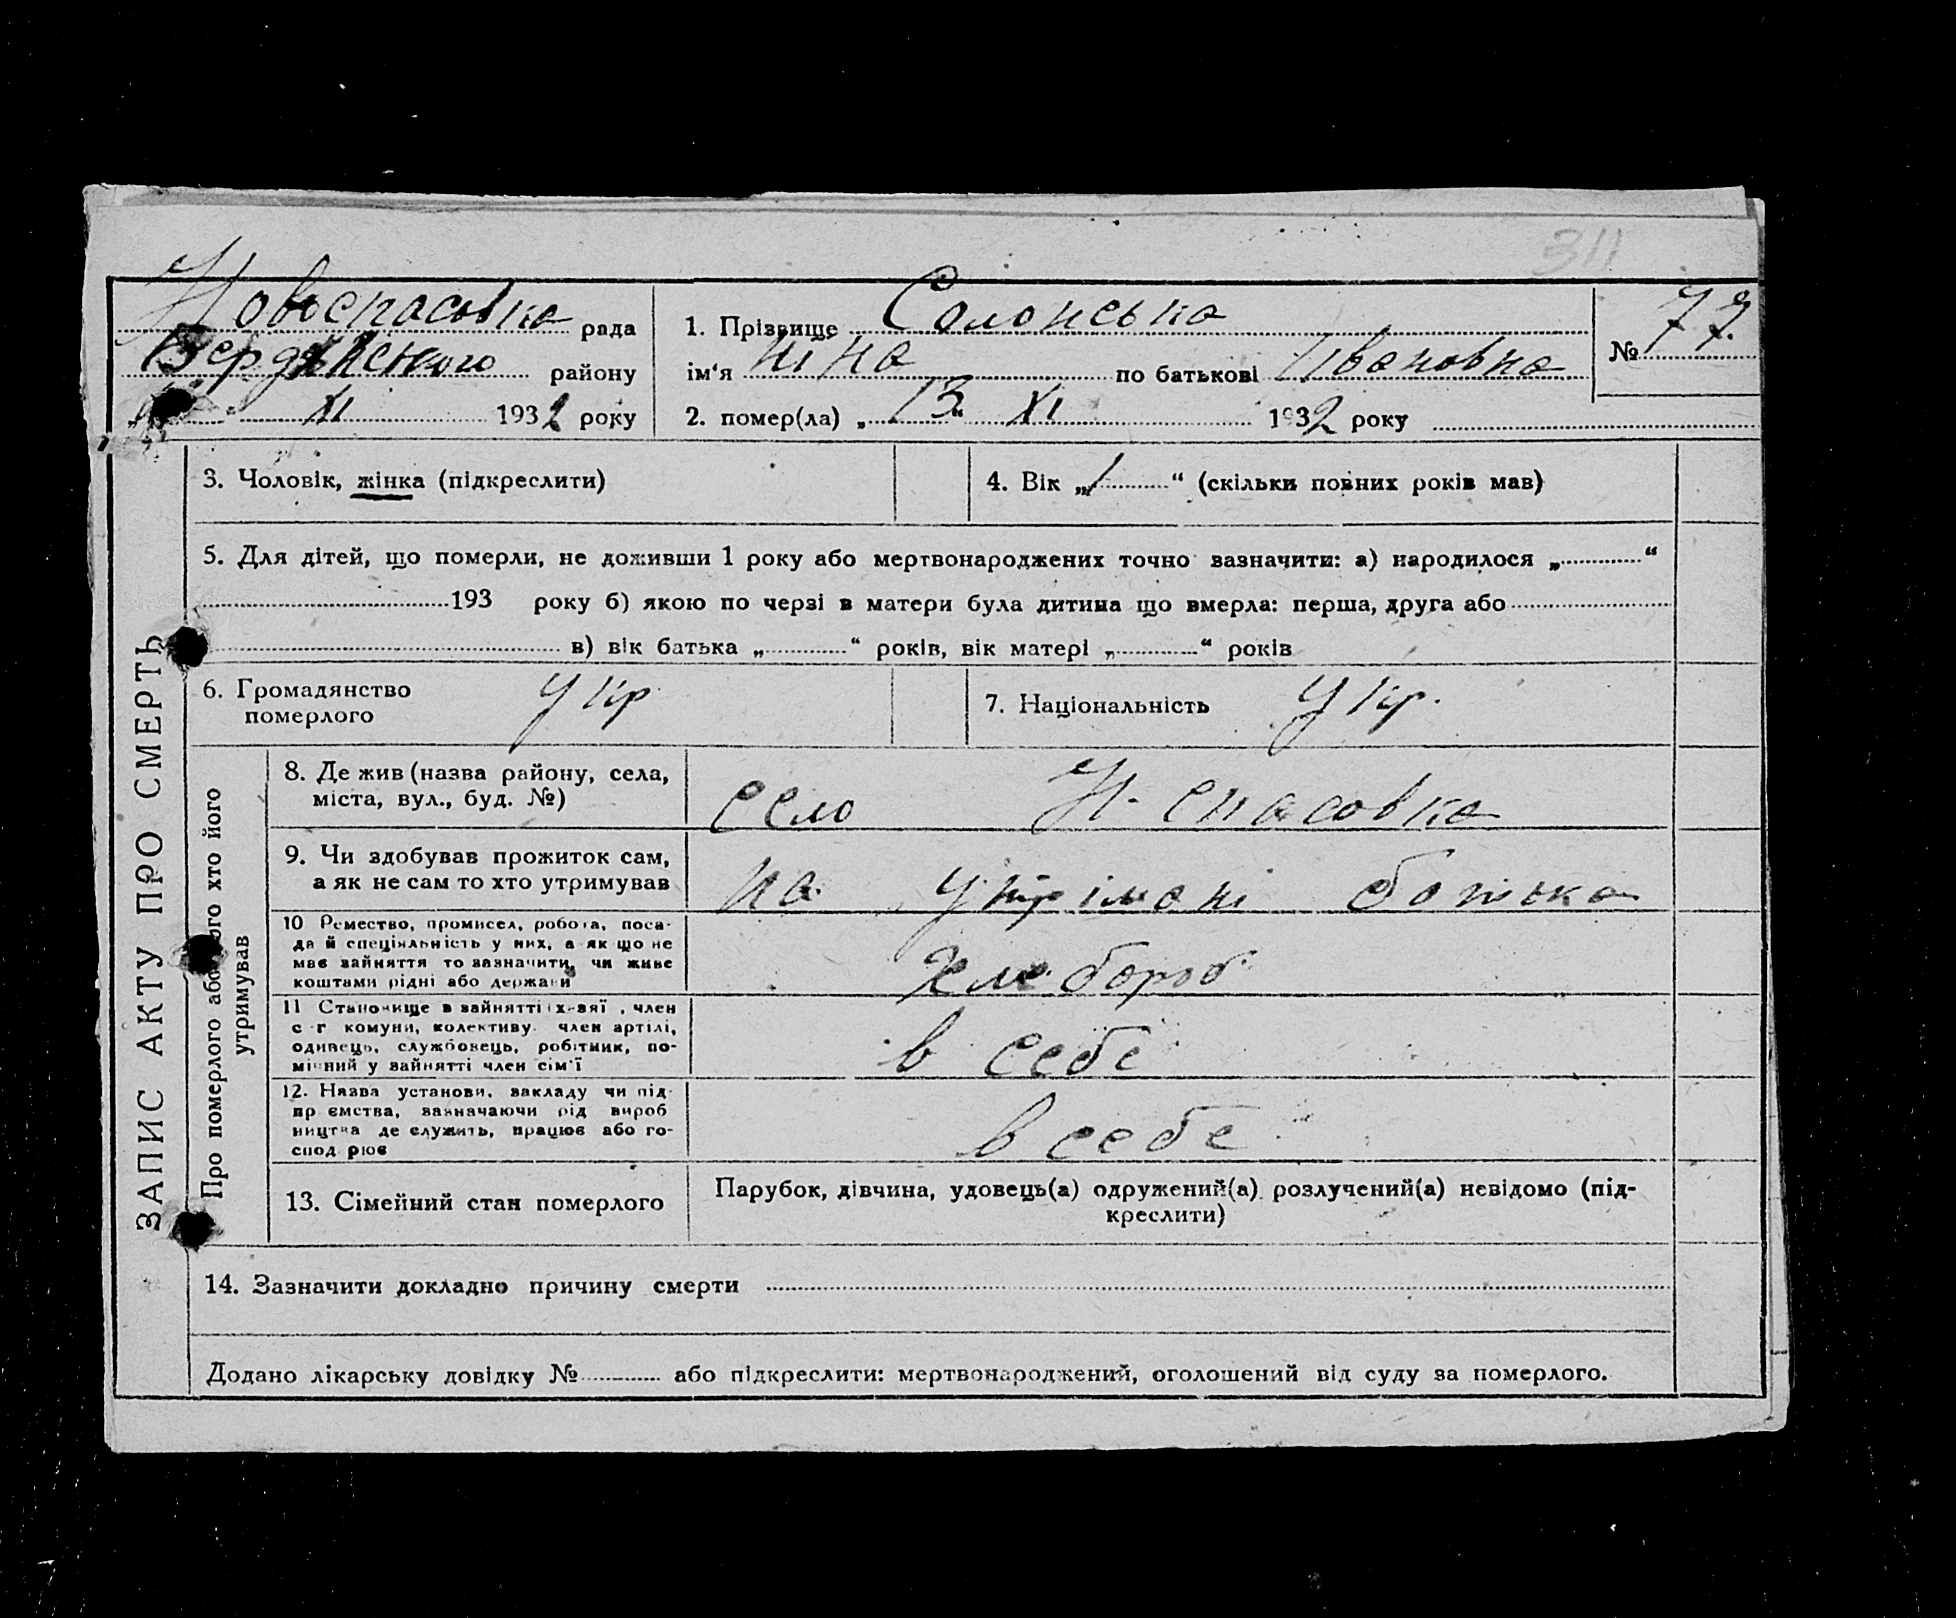 311
Новоспасовка рада
Бердянського району
XI 1932 року
1. Прізвище Солонська
ім'я Ніна по батькові Івановна
2. помер(ла) „13“ XI 1932 року
№ 77
ЗАПИС АКТУ ПРО СМЕРТЬ
3. Чоловік, жінка (підкреслити)
4. Вік „1“ (скільки повних років мав)
5. Для дітей, що померли, не доживши 1 року або мертвонароджених точно зазначити: а) народилося „ “
193 року б) якою по черзі в матери була дитина що вмерла: перша, друга або
в) вік батька „ “ років, вік матері „ “ років
6. Громадянство
померлого Укр
7. Національність Укр.
Про померлого або того хто його
утримував
8. Де жив (назва району, села,
міста, вул., буд. №)
село Н-спасовка
9. Чи здобував прожиток сам,
а як не сам то хто утримував
на утрімані батька
10 Ремество, промисел, робота, поса-
да й спеціяльність у них, а як що не
має зайняття то зазначити, чи живе
коштами рідні або держави
хлебороб
11 Становище в зайнятті
с-г комуни, колективу член артілі,
одинець, службовець, робітник, по-
мічний у зайнятті член сім'ї
в себе
12. Назва установи, закладу чи під-
приємства, зазначаючи рід вироб
ництва де служить, працює або го-
спод рює
в себе
13. Сімейний стан померлого
Парубок, дівчина, удовець(а) одружений(а) розлучений(а) невідомо (під-
креслити)
14. Зазначити докладно причину смерти
Додано лікарську довідку № або підкреслити: мертвонароджений, оголошений від суду за померлого.